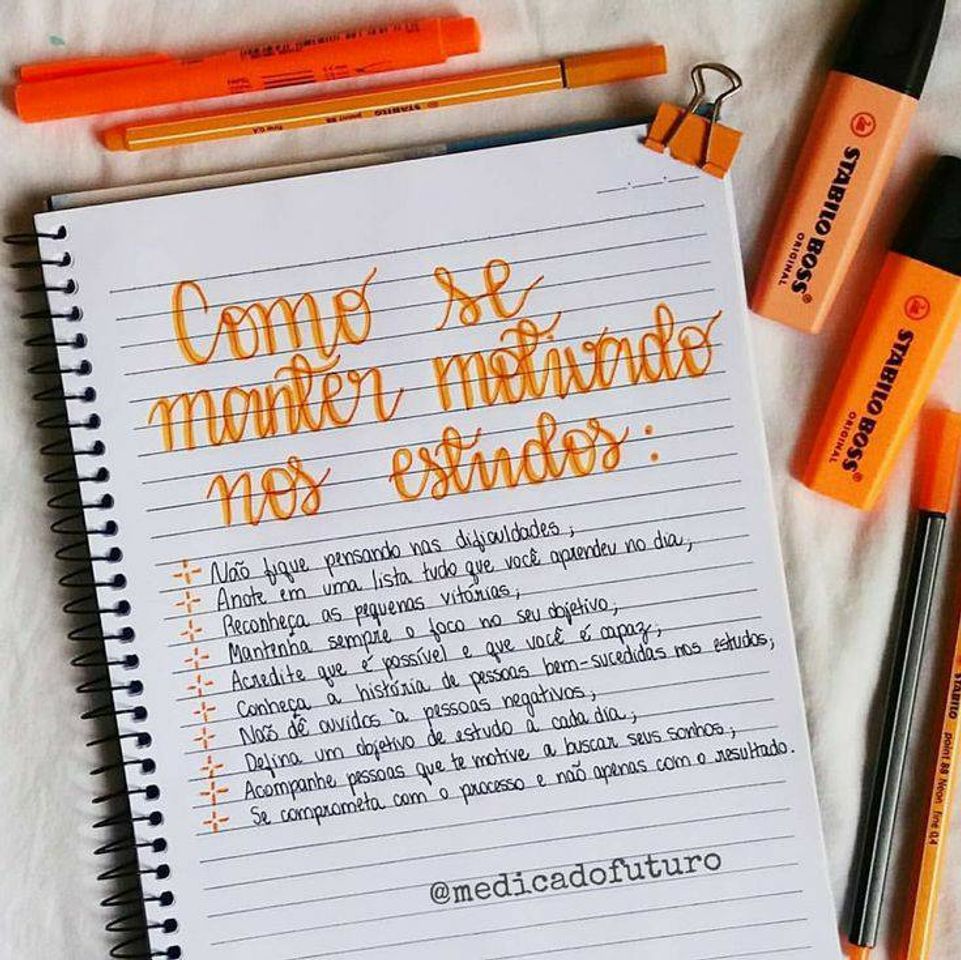 STABILO point 88 fine 0,4
STABILO BOSS
ORIGINAL
STABILO BOSS
ORIGINAL
Como se
manter motivado
nos estudos:
Não fique pensando nas dificuldades;
Anote em uma lista tudo que você aprendeu no dia;
Reconheça as pequenas vitórias;
Mantenha sempre o foco no seu objetivo;
Acredite que é possível e que você é capaz;
Conheça a história de pessoas bem-sucedidas nos estudos;
Não dê ouvidos à pessoas negativos;
Defina um objetivo de estudo à cada dia;
Acompanhe pessoas que te motive a buscar seus sonhos;
Se comprometa com o processo e não apenas com o resultado.
STABILO point 88 Neon fine 0,4
@medicadofuturo